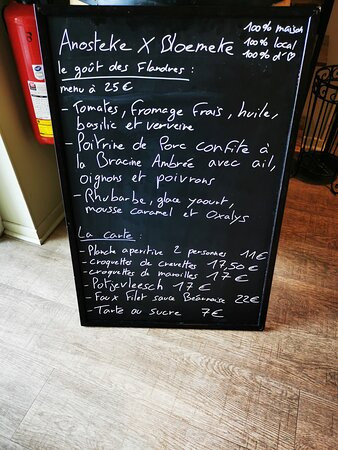 Anosteke X Bloemeke
100% maison
100% local
100% d'♡
le goût des Flandres :
menu à 25€
- Tomates, fromage frais, huile,
basilic et verveine
- Poitrine de Porc confite à
la Bracine Ambrée avec ail,
oignons et poivrons
- Rhubarbe, glace yaourt,
mousse caramel et Oxalys
La carte :
- Planche aperitive 2 personnes 11€
- Croquettes de crevettes 17,50€
- croquettes de maroilles 17€
- Potjevleesch 17€
- Faux Filet sauce Béarnaise 22€
- Tarte au sucre 7€